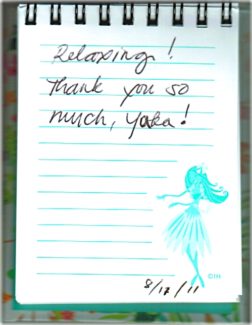 Relaxing!
Thank you so
much, Yoka!
8/17/11